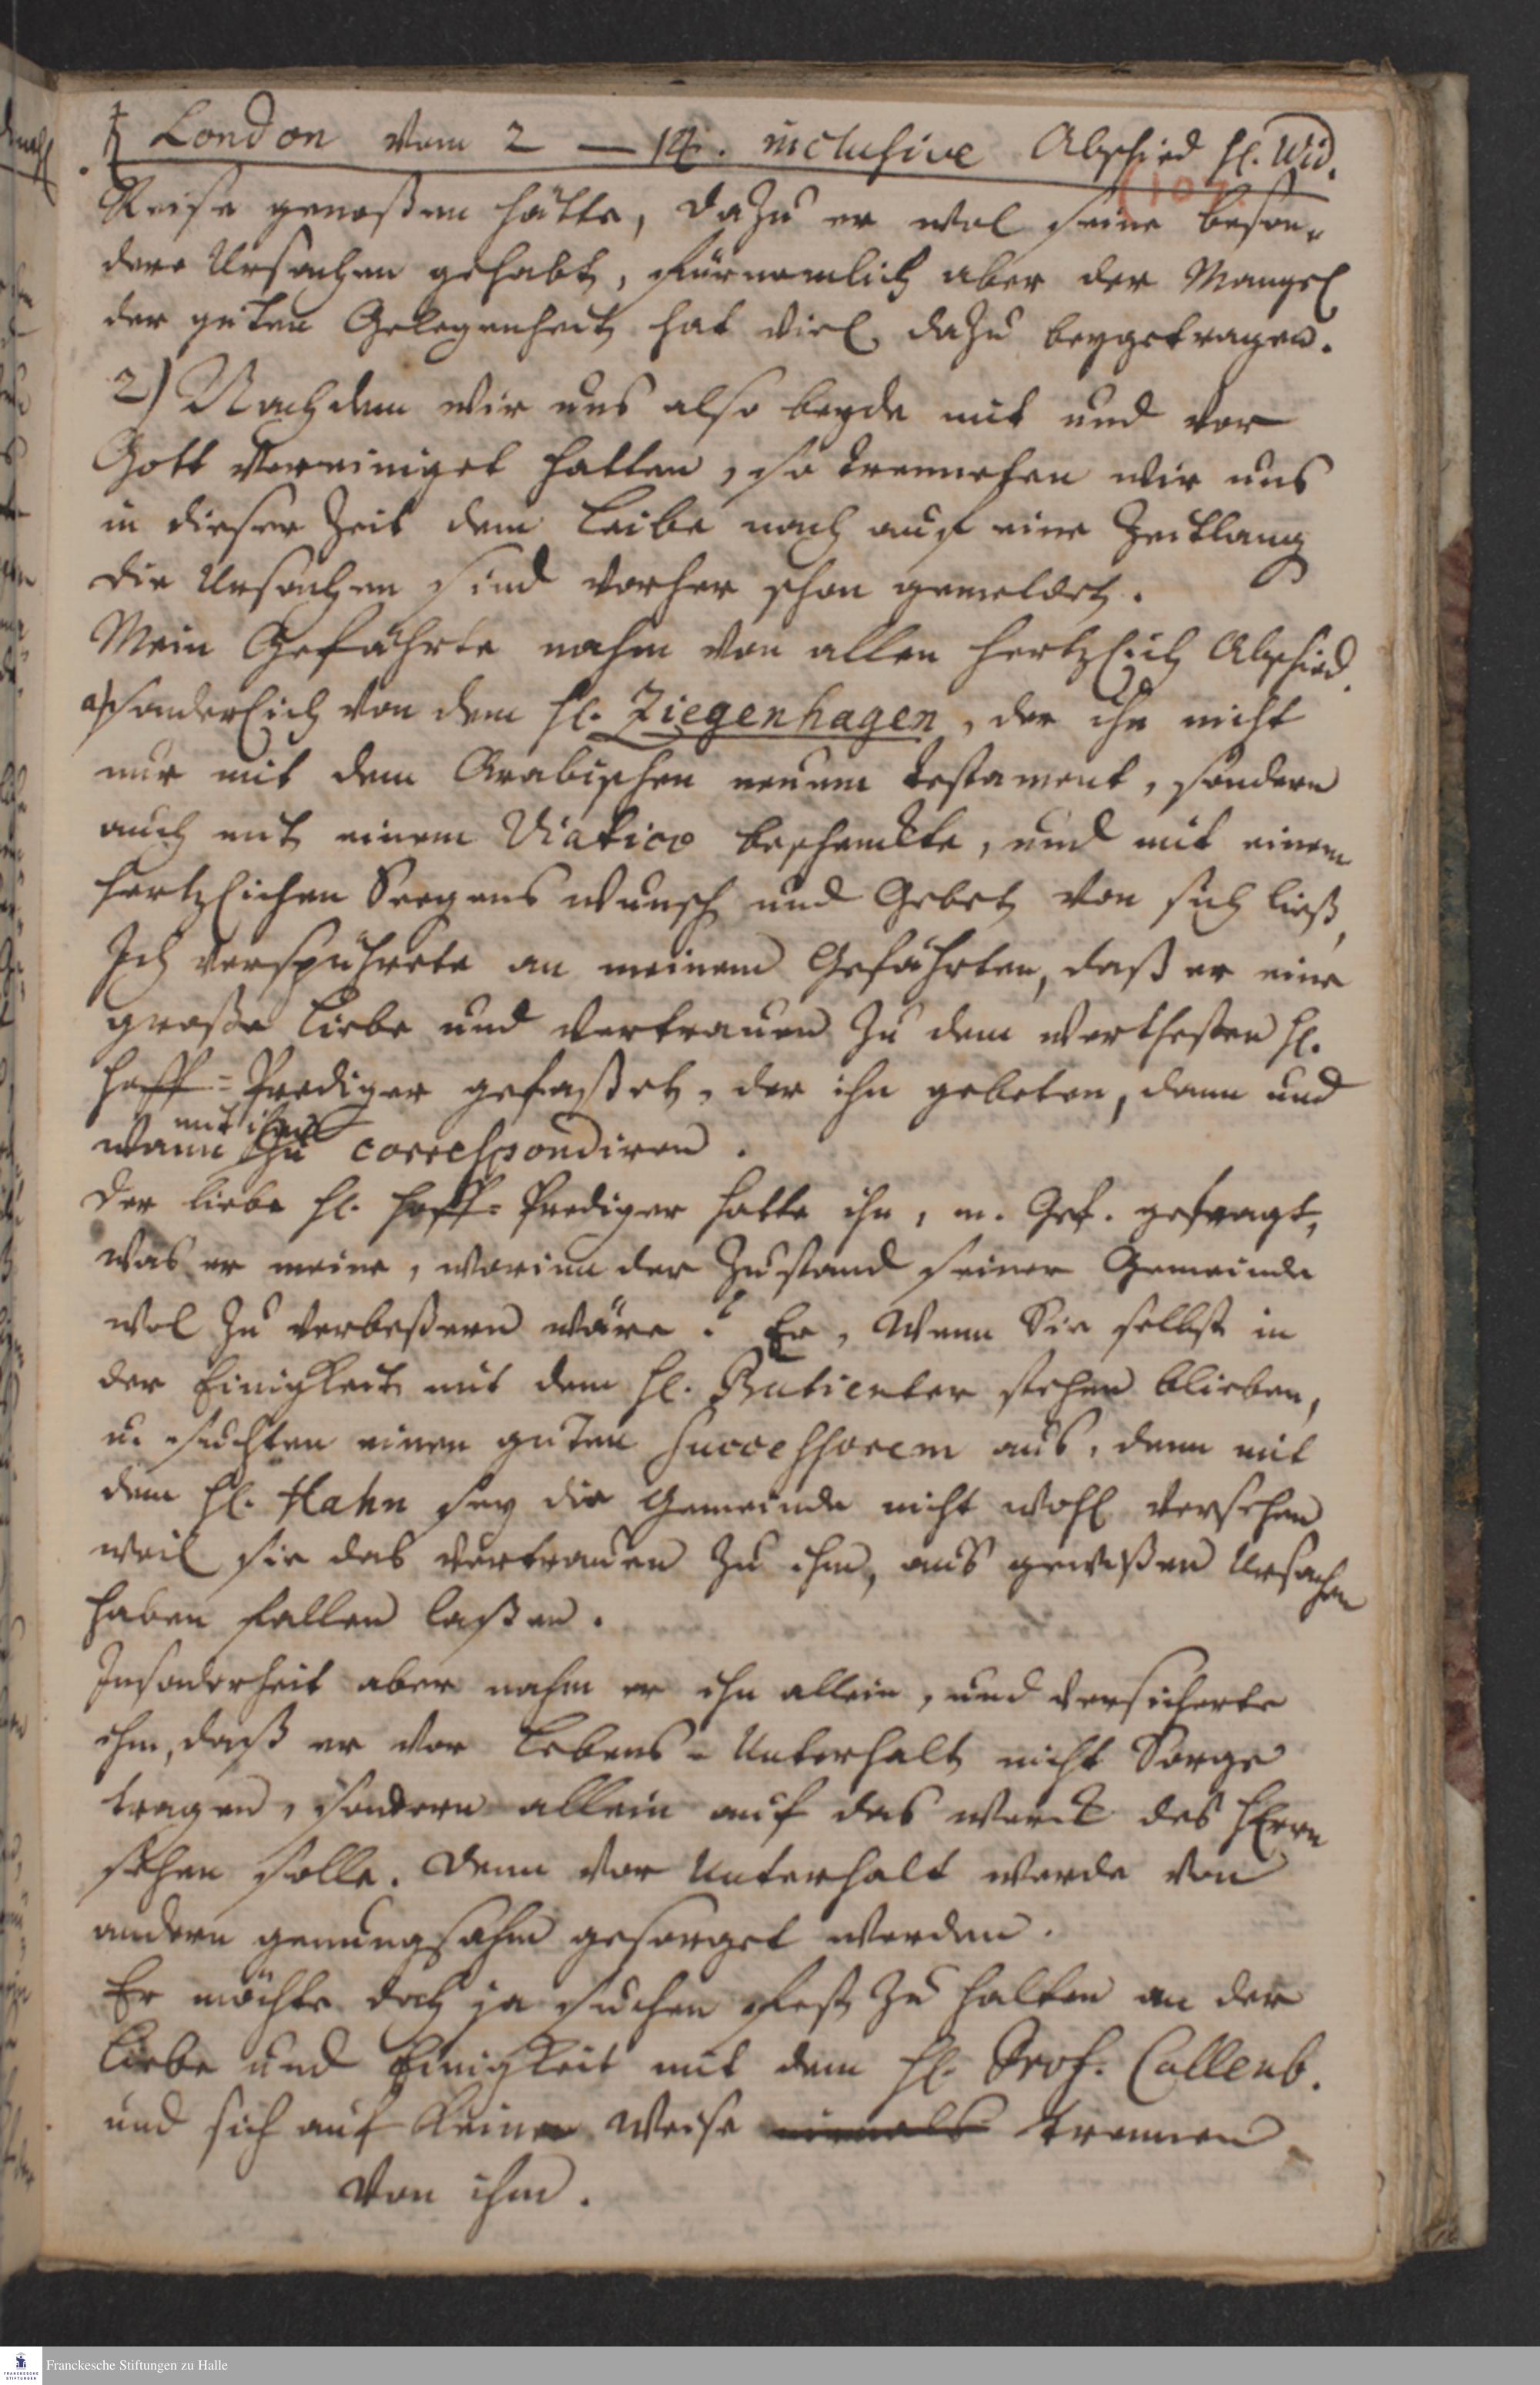 ♄ London vom 2 — 14. inclusive Abschied H. Wid.
(107.
Reise genoßen hätte, dazu er wol seine beson-
dere Ursachen gehabt, fürnemlich aber der Mangel
der guten Gelegenheit hat viel dazu beygetragen.
2) Nachdem wir uns also beyde mit und vor
Gott vereiniget hatten, so trenneten wir uns
in dieser Zeit dem Leibe nach auf eine Zeitlang
die Ursachen sind vorher schon gemeldet.
Mein Gefährte nahm von allen hertzlich Abschied.
a) sonderlich von dem H. Ziegenhagen, der ihn nicht
nur mit dem Arabischen neuem Testament, sondern
auch mit einem Viatico beschenckte, und mit einem
hertzlichen Seegens wunsch und Gebet von sich ließ,
Ich verspührete an meinem Gefährten, daß er eine
große Liebe und Vertrauen zu dem werthesten H.
Hoff-Prediger gefaßet, der ihn gebeten, dann und
mit ihm
wann zu correspondiren.
Der liebe H. Hoff-Prediger hatte ihn, m. Gef. gefragt,
was er meine, worinn der Zustand seiner Gemeinde
wol zu verbeßern wäre? Er, Wenn Sie selbst in
der Einigkeit mit dem H. Butienter stehen blieben,
u. suchten einen guten Successorem aus, denn mit
dem H. Hahn sey die Gemeinde nicht wohl versehen
weil sie das Vertrauen zu ihm, aus gewißen Ursachen
haben fallen laßen.
Insonderheit aber nahm er ihn allein, und versicherte
ihm, daß er vor Lebens-Unterhalt nicht Sorge
tragen, sondern allein auf das Werck des HErrn
sehen solle. Denn vor Unterhalt werde von
andern genungsahm gesorget werden.
Er möchte doch ja suchen fest zu halten an der
Liebe und Einigkeit mit dem H. Prof. Callenb.
und sich auf keine Weise niemals trennen
von ihm.
Franckesche Stiftungen zu Halle